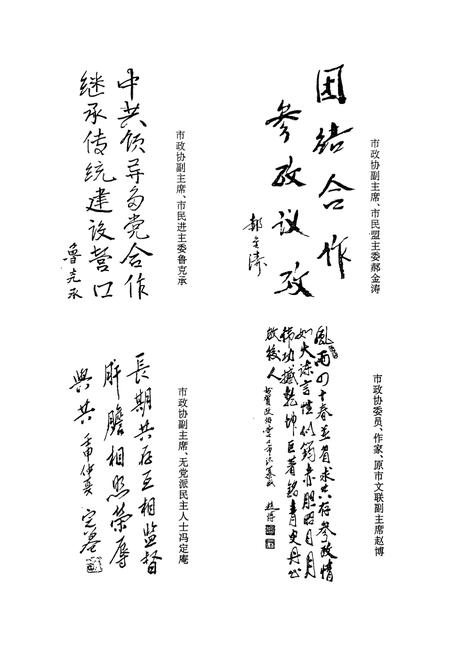 团结合作
参政议政
郝金涛
市政协副主席、市民盟主委郝金涛
中共领导多党合作
继承传统建设营口
鲁克承
市政协副主席、市民进主委鲁克承
風雨四十春並肩求共存参政情
如火諫言性似鋼赤胆昭日月
偉功撼乾坤巨著銘青史丹心
啟後人
赵博
市政协委员、作家、原市文联副主席赵博
長期共存互相监督
肝膽相照荣辱
與共
壬申仲夏
定庵
市政协副主席、无党派民主人士冯定庵